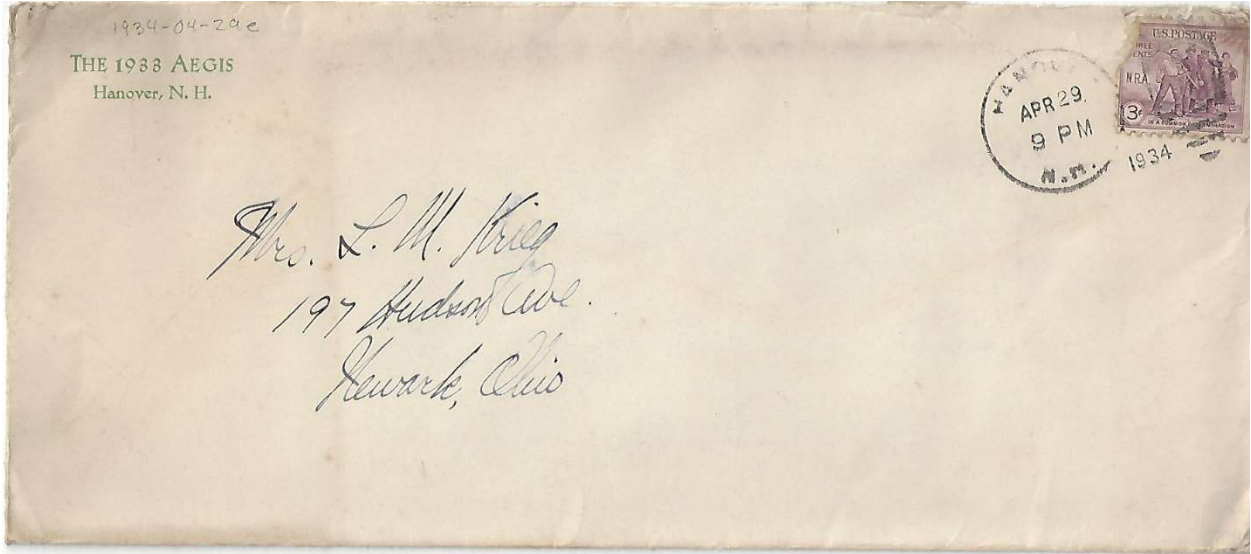 1934-04-29e
THE 1933 AEGIS
Hanover, N. H.
HANOVER
APR 29
9 PM
N.H.
1934
U.S. POSTAGE
THREE CENTS
N.R.A.
3¢
IN A COMMON DETERMINATION
Mrs. L. M. Krieg
197 Hudson Ave.
Newark, Ohio